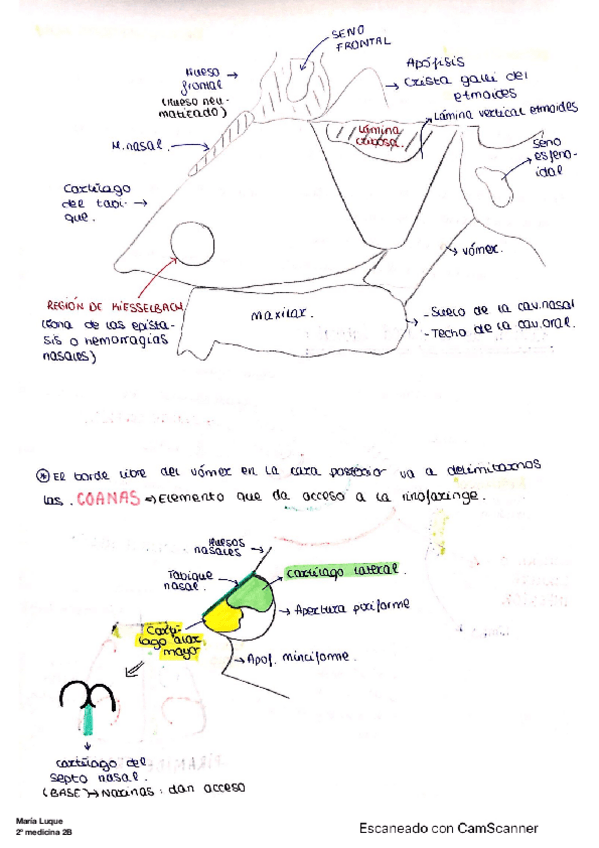 SENO
FRONTAL
Hueso
frontal
(Hueso neu-
maticado)
Apófisis
Crista galli del
etmoides
Lámina vertical etmoides
Lámina
cribosa.
H. nasal.
Seno
esfeno-
idal
Cartílago
del tabi-
que.
vómer.
REGIÓN DE KIESSELBACH
(zona de las epista-
sis o hemorragias
nasales)
Maxilar.
- Suelo de la cav. nasal
- Techo de la cav. oral.
* El borde libre del vómer en la cara posterior va a delimitarnos
las COANAS => Elemento que da acceso a la rinofaringe.
Huesos
nasales
Tabique
nasal.
Cartílago lateral.
Apertura piriforme
Cartí-
lago alar
mayor
Apof. minciforme.
cartílago del
septo nasal.
(BASE) → Narinas: dan acceso
María Luque
2º medicina 2B
Escaneado con CamScanner